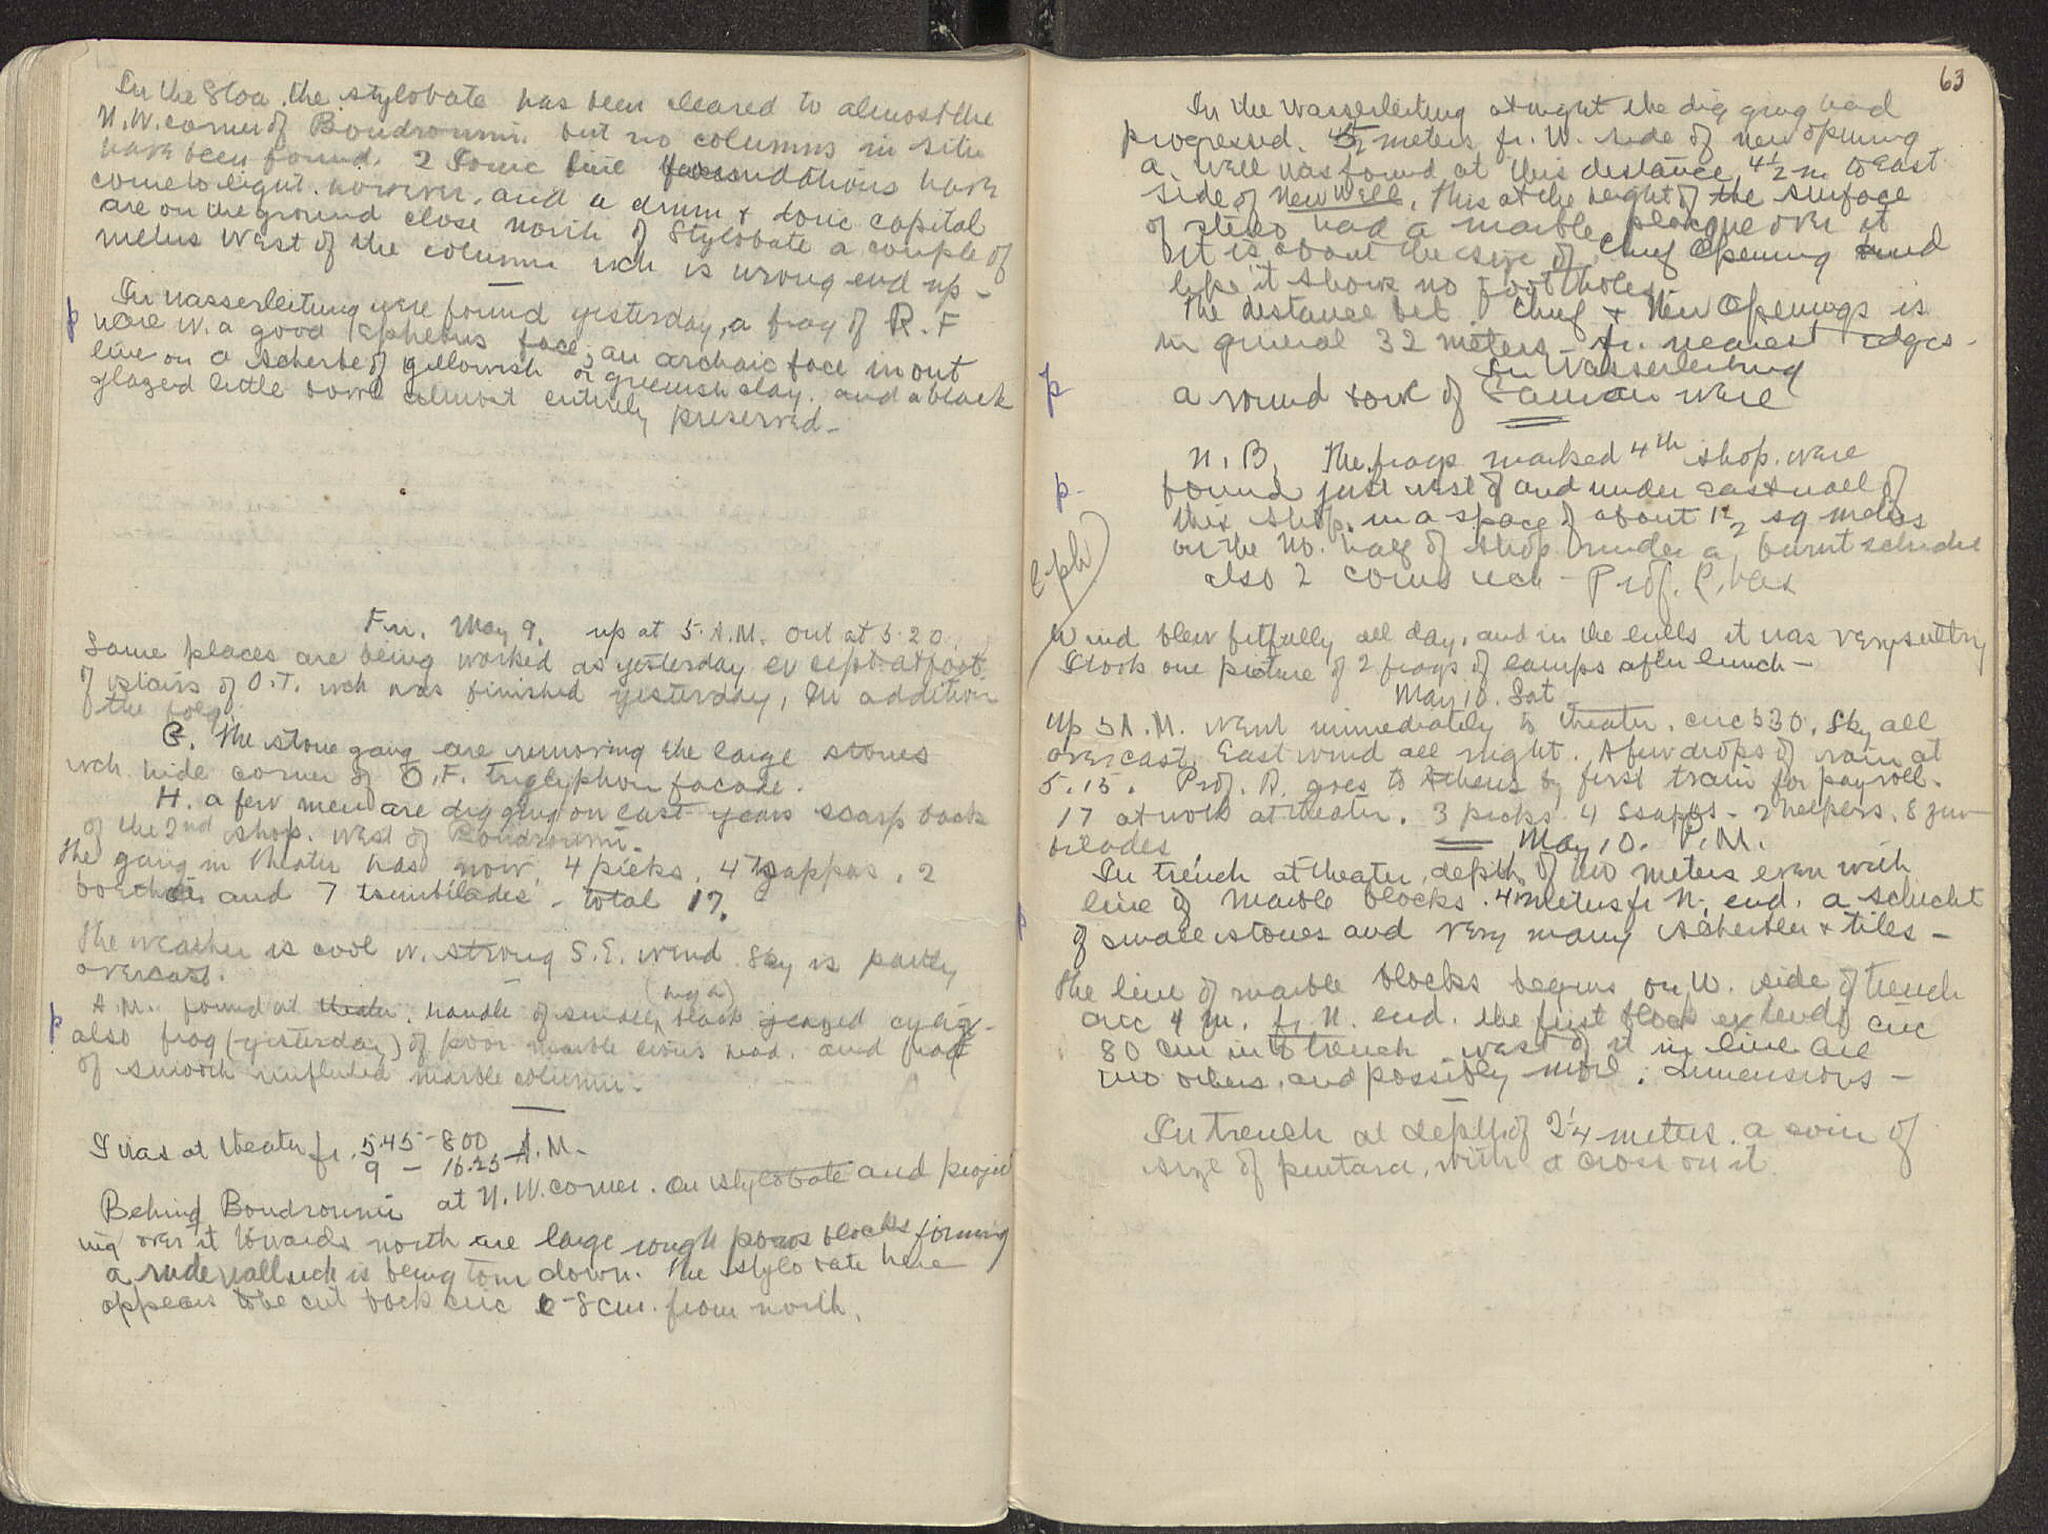 In the Stoa, the stylobate has been cleared to almost the
N.W. corner of Boudroumi, but no columns in situ
have been found. 2 Ionic line foundations have
come to light, however, and a drum + doric capital
are on the ground close north of Stylobate a couple of
meters West of the column wch is wrong end up -
p In Wasserleitung were found yesterday, a frag of R.F
ware w. a good face, an archaic face in out
line on a scherbe of yellowish or greenish clay, and a black
glazed little bowl almost entirely preserved -
Fri. May 9. up at 5. A.M. out at 5.20.
Same places are being worked as yesterday except at foot
of stairs of O.T. wch was finished yesterday, In addition
the folg.
G. The stone gang are removing the large stones
wch hide corner of O.F. triglyphon facade.
H. a few men are digging on last years scarp back
of the 2nd shop west of Boudroumi -
The gang in theater has now, 4 picks, 4 tsappas, 2
and 7 tsimbilades - total 17.
The weather is cool w. strong S.E. wind. Sky is partly
overcast.
(high)
p A.M. found at theater, handle of small black glazed cylix -
also frag (yesterday) of poor marble lions head, and frag
of smooth unfluted marble column -
I was at theater fr. 5.45 - 8 00 A.M.
9 - 10.25
Behind Boudroumi at N.W. corner. on stylobate and project
ing over it towards north are large rough poros blocks forming
a rude wall wch is being torn down. The stylobate here
appears to be cut back circ 8 cm. from north.
63
In the Wasserleitung at night the digging had
progressed. 4 1/2 meters fr. W. side of new opening
a well was found at this distance, 4 1/2 m to East
side of New Well, This at the height of the surface
of stereo had a marble plaque over it
It is about the size of Chief Opening and
like it shows no footholes.
The distance bet. Chief + New Openings is
in general 32 meters - fr. nearest edges -
In Wasserleitung
p a round bowl of Samian ware
p. N.B. The frags marked 4th shop. were
found just west of and under east wall of
this shop, in a space of about 1 1/2 sq meters
on the No. half of shop under a burnt schicht
also 2 coins wch - Prof. R. has
eph
Wind blew fitfully all day, and in the lulls it was very sultry
I took one picture of 2 frags of lamps after lunch -
May 10. Sat
up 5 A.M. went immediately to theater, circ 5 30. Sky all
overcast, East wind all night. A few drops of rain at
5.15. Prof. R. goes to Athens by first train for payroll.
17 at work at theater. 3 picks 4 tsappas - 2 helpers. 8 zim
bilades
May 10. P.M.
In trench at theater, depth of two meters even with
p line of marble blocks. 4 meters fr N. end. a schicht
of small stones and very many scherben + tiles -
The line of marble blocks begins on W. side of trench
circ 4 m. fr N. end. the first block extends circ
80 cm into trench west of it in line are
two others, and possibly more. dimensions -
In trench at depth of 2 1/4 meters. a coin of
size of pentara, with a cross on it.